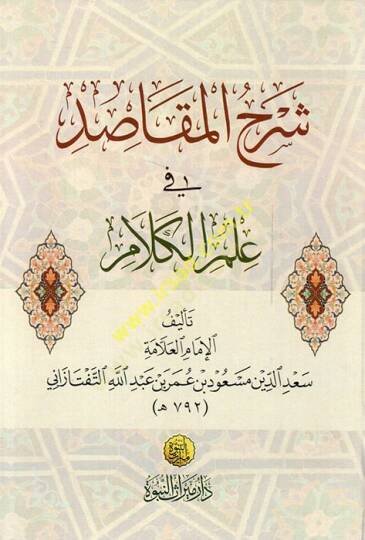 شَرْحُ المَقَاصِدِ
في
عِلْمِ الكَلَامِ
تَألِيفُ
الإِمَامِ العَلَّامَةِ
سَعْدِ الدِّينِ مَسْعُودِ بْنِ عُمَرَ بْنِ عَبْدِ اللهِ التَّفْتَازَانِي
(٧٩٢ هـ)
دَارُ مِيرَاثِ النُّبُوَّةِ